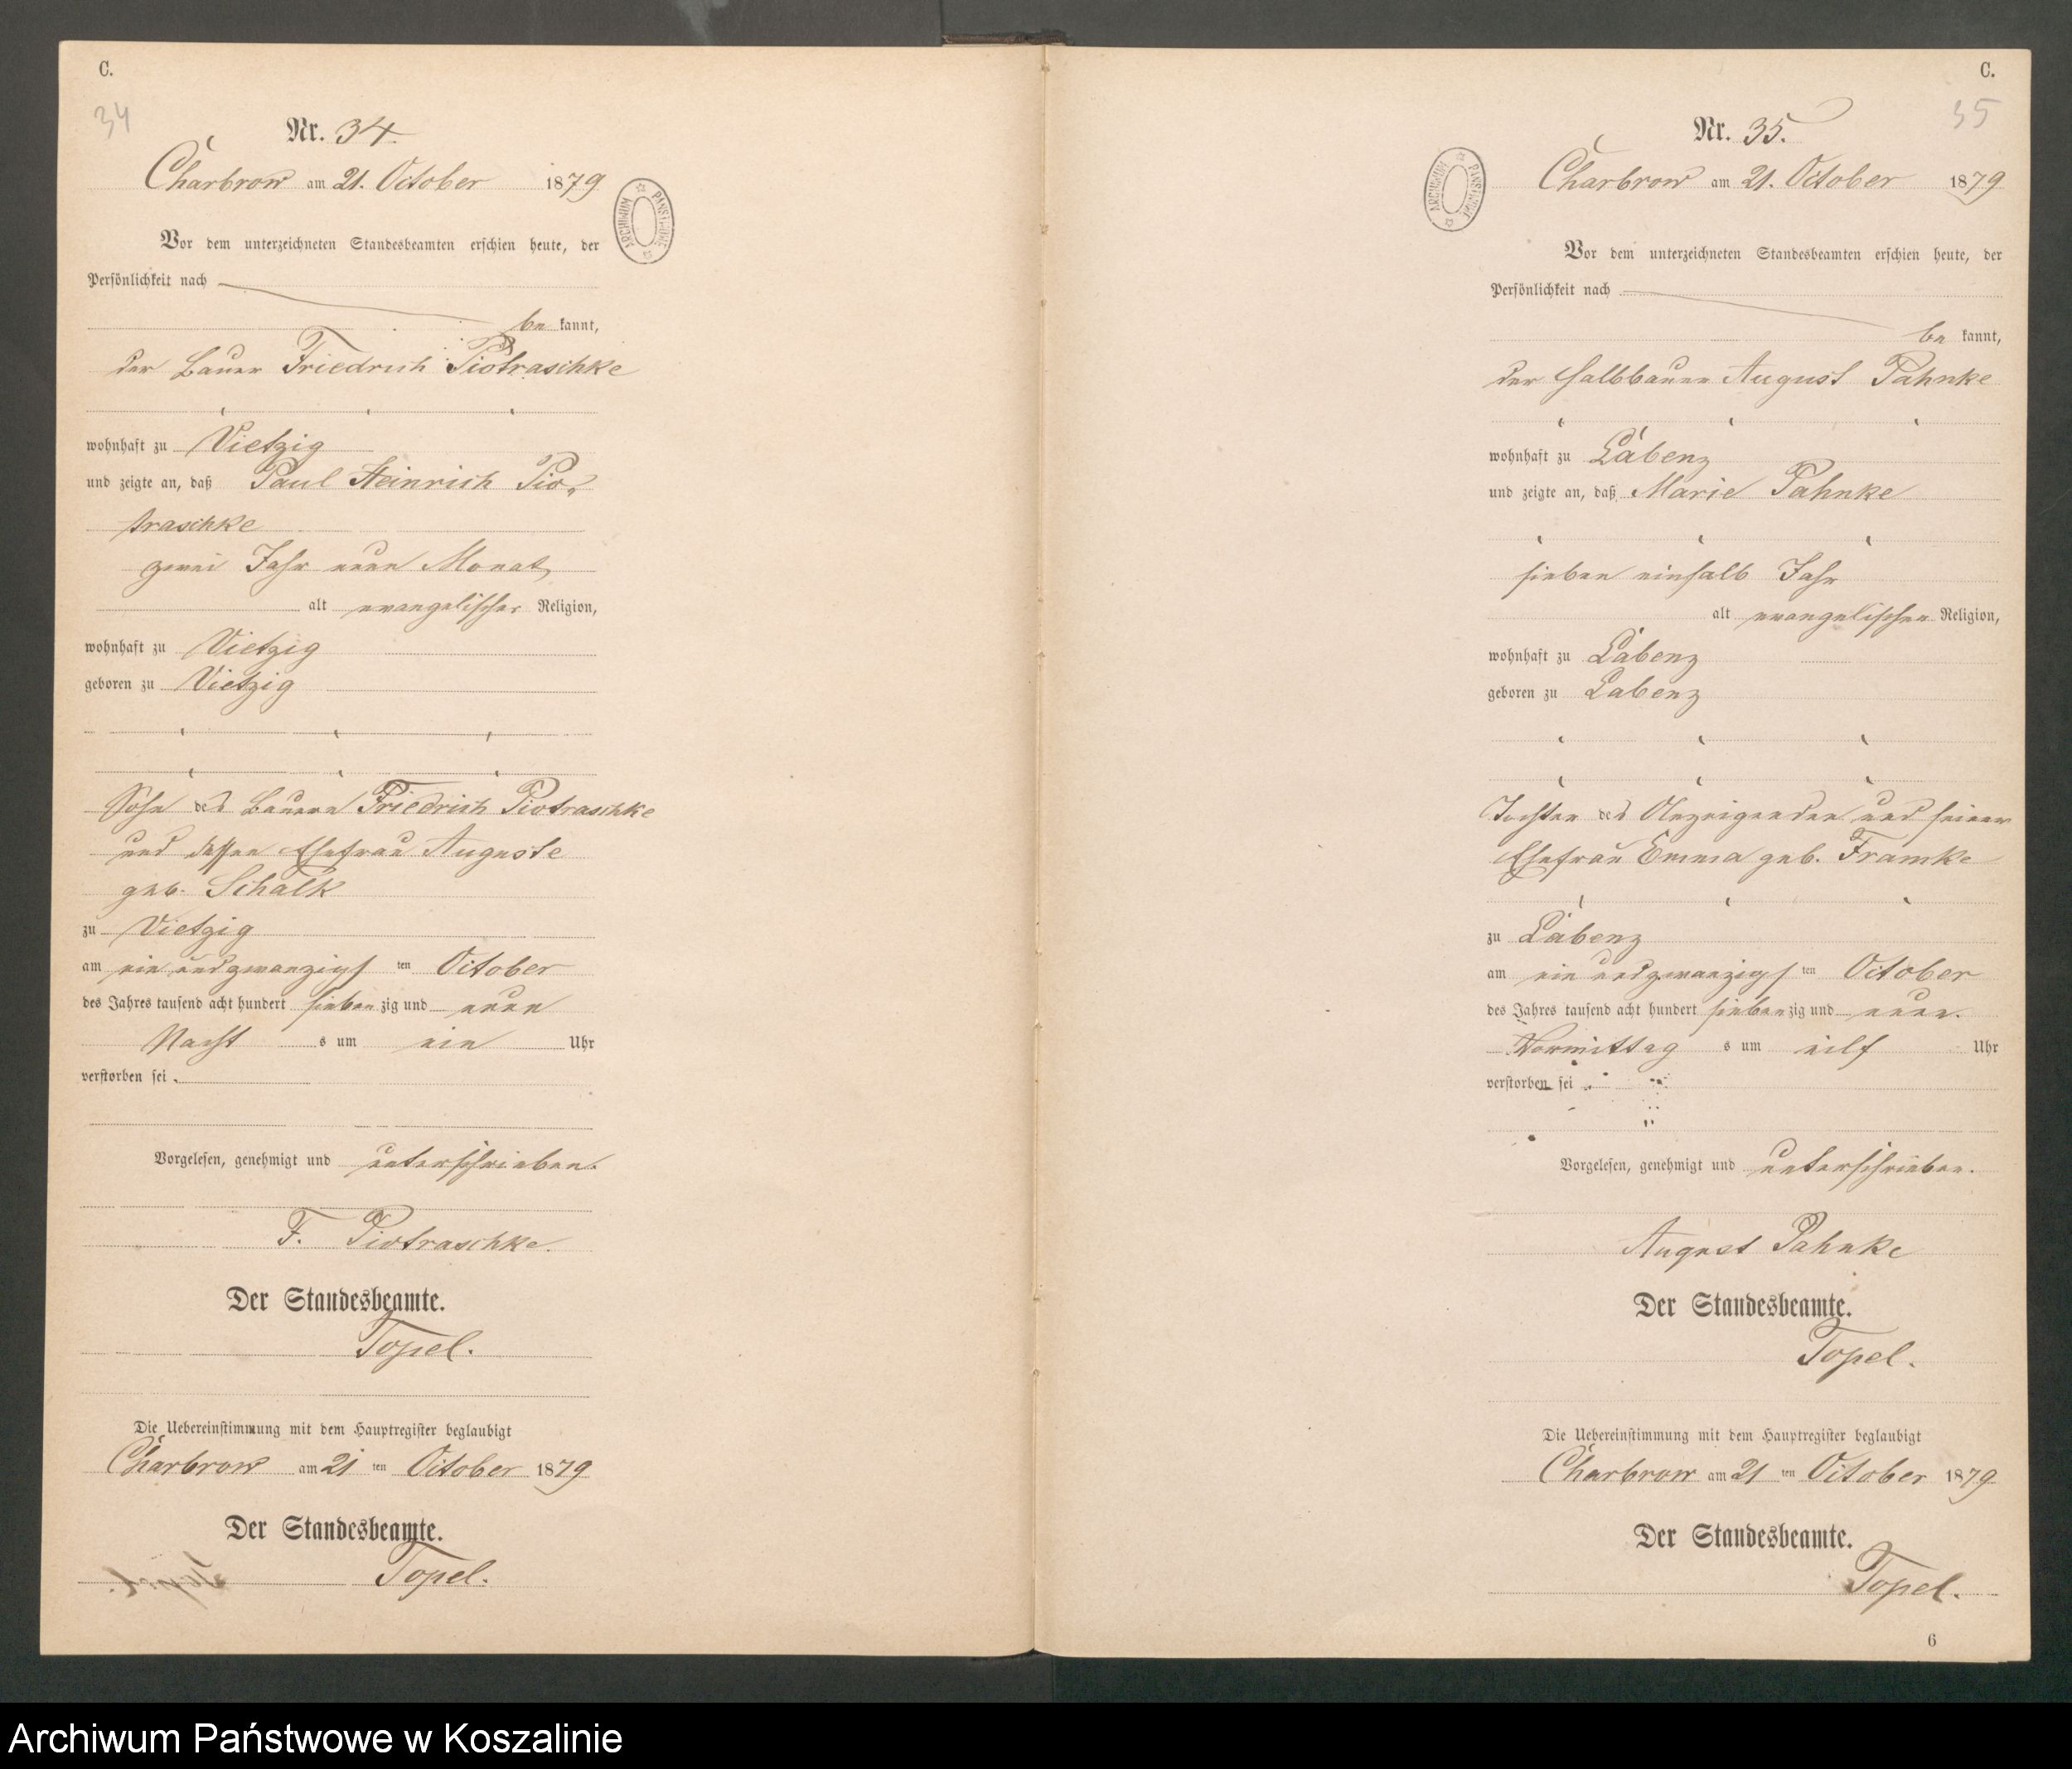 C.
34
Nr. 34.
Charbrow am 21. October 1879
ARCHIWUM PAŃSTWOWE
Vor dem unterzeichneten Standesbeamten erschien heute, der
Persönlichkeit nach
be kannt,
der Bauer Friedrich Piotraschke
wohnhaft zu Vietzig
und zeigte an, daß Paul Heinrich Pio-
traschke
zwei Jahr neun Monat
alt evangelischer Religion,
wohnhaft zu Vietzig
geboren zu Vietzig
Sohn des Bauern Friedrich Piotraschke
und dessen Ehefrau Auguste
geb. Schalk
zu Vietzig
am ein und zwanzigsten October
des Jahres tausend acht hundert siebenzig und neun
Nachts um ein Uhr
verstorben sei.
Vorgelesen, genehmigt und unterschrieben.
F. Piotraschke.
Der Standesbeamte.
Topel.
Die Uebereinstimmung mit dem Hauptregister beglaubigt
Charbrow am 21 ten October 1879
Der Standesbeamte.
Topel.
C.
35
Nr. 35.
Charbrow am 21. October 1879
ARCHIWUM PAŃSTWOWE
Vor dem unterzeichneten Standesbeamten erschien heute, der
Persönlichkeit nach
be kannt,
der Halbbauer August Pahnke
wohnhaft zu Labenz
und zeigte an, daß Marie Pahnke
sieben einhalb Jahr
alt evangelischer Religion,
wohnhaft zu Labenz
geboren zu Labenz
Tochter des Anzeigenden und seiner
Ehefrau Emma geb. Framke
zu Labenz
am ein und zwanzigsten October
des Jahres tausend acht hundert siebenzig und neun.
Vormittags um eilf Uhr
verstorben sei
Vorgelesen, genehmigt und unterschrieben.
August Pahnke
Der Standesbeamte.
Topel.
Die Uebereinstimmung mit dem Hauptregister beglaubigt
Charbrow am 21 ten October 1879
Der Standesbeamte.
Topel.
6
Archiwum Państwowe w Koszalinie